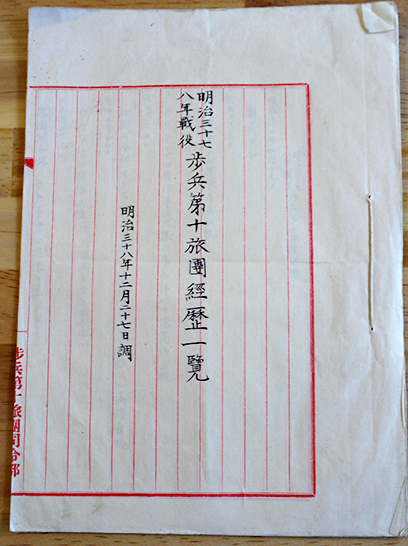 明治三十七
八年戰役
歩兵第十旅團經歷一覽
明治三十八年十二月二十七日調
歩兵第十旅團司令部